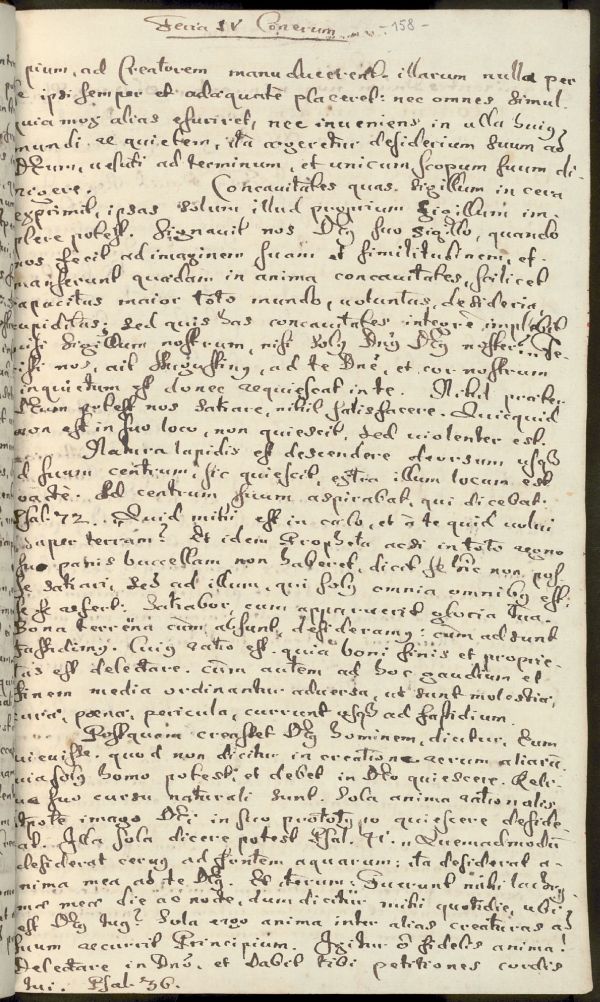 Feria IV Cinerum - 158 -
pium, ad Creatorem manuducerent. illarum nulla per
se ipsi semper et adaequatè placeret: nec omnes simul.
quia mox alias esuriret, nec inveniens in ulla huiq
mundi re quietem, ita argeretur desiderium suum ad
Deum, veluti ad terminum, et unicum scopum suum di-
rigere. Concavitates quas sigillum in cera
exprimit, ipsas solum illud proprium sigillum im-
plere potest. Signavit nos Dq suo sigillo, quando
nos fecit ad imaginem suam et similitudinem, et
manserunt quaedam in anima concavitates, scilicet
capacitas maior toto mundo, voluntas, desideria,
cupiditas; sed quis has concavitates integrè implebit
nisi sigillum nostrum, nisi solq Dnq Dq noster. Fe-
cisti nos, ait Augustinq, ad te Dne, et cor nostrum
inquietum est donec requiescat in te. Nihil praeter
Deum potest nos satiare, nihil satisfacere. Quicquid
non est in suo loco, non quiescit, sed violenter est.
Natura lapidis est descendere deorsum usq
ad suum centrum, sic quiescit, extra illum locum est
Ad centrum suum aspirabat, qui dicebat.
Psal. 72. Quid mihi est in caelo, et à te quid volui
super terram? Et idem Propheta acsi in toto regno
suo panis buccellam non haberet, dicit se hic non pos-
se satiari, sed ad illum, qui solq omnia omnibq est:
se refert: Satiabor, cum apparuerit gloria tua.
Bona terrena cùm absunt, desideramq: cum adsunt
fastidimq. Cuiq ratio est. quia boni finis et proprie-
tas est delectare. cùm autem ad hoc gaudium et
finem media ordinantur adversa, ut sunt molestia,
cura, poena, pericula, currunt usq ad fastidium.
Postquam creasset Dq hominem, dicitur, Eum
quievisse. quod non dicitur in creatione rerum aliarū.
quia solq homo potest, et debet in Deo quiescere. Reli-
qua suo cursu naturali sunt. Sola anima rationalis
utpote imago Dei in suo prototypo quiescere deside-
rat. Ista sola dicere potest Psal. 41. Quemadmodū
desiderat cervq ad fontem aquarum: ita desiderat a-
nima mea ad te Dq. Et iterum: Fuerunt mihi lachry-
mae meae die ac nocte, dum dicitur mihi quotidie, ubi
est Dq tuq? Sola ergo anima inter alias creaturas ad
suum recurrit Principium. Igitur ô fidelis anima!
Delectare in Dno, et dabit tibi petitiones cordis
tui. Psal. 36.